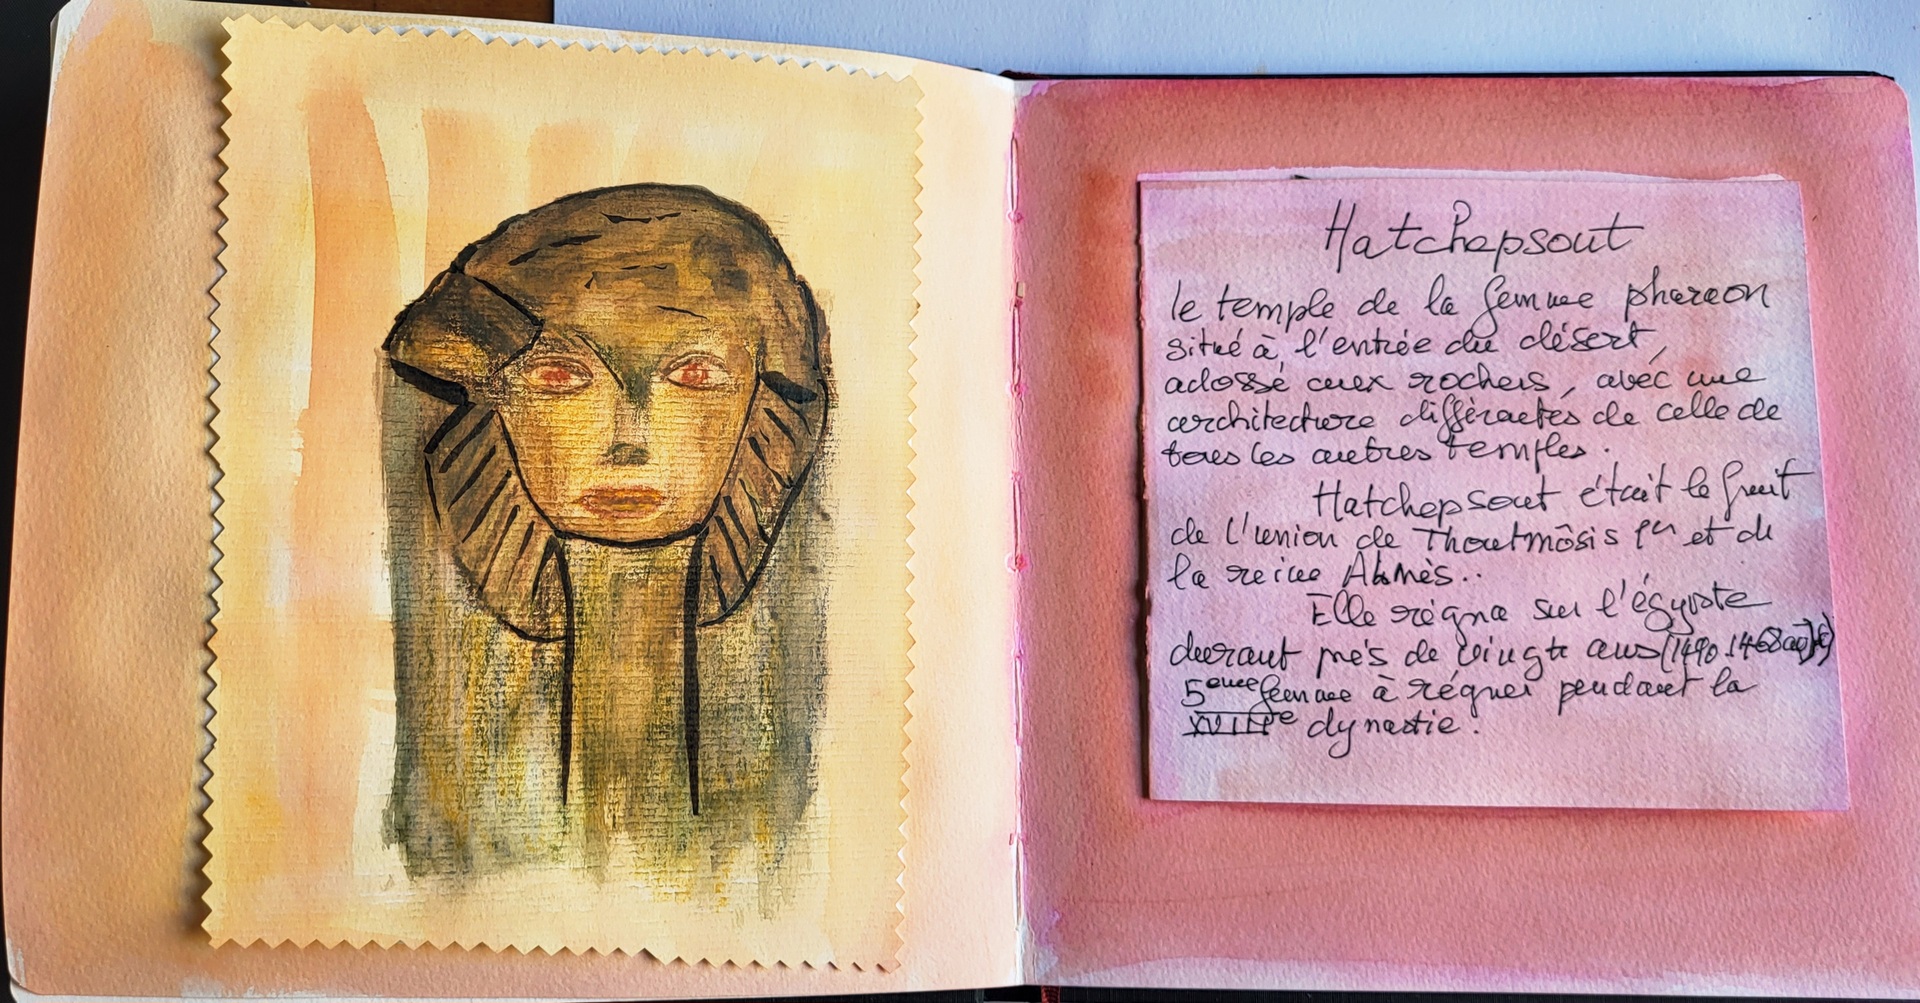 Hatchepsout
le temple de la femme pharaon
situé à l'entrée du désert,
adossé aux rochers, avec une
architecture différentes de celle de
tous les autres temples.
Hatchepsout était le fruit
de l'union de Thoutmôsis 1er et de
la reine Ahmès..
Elle régna sur l'égypte
durant près de vingts ans (1490.1468
5eme femme à régner pendant la
XVIIIe dynastie.